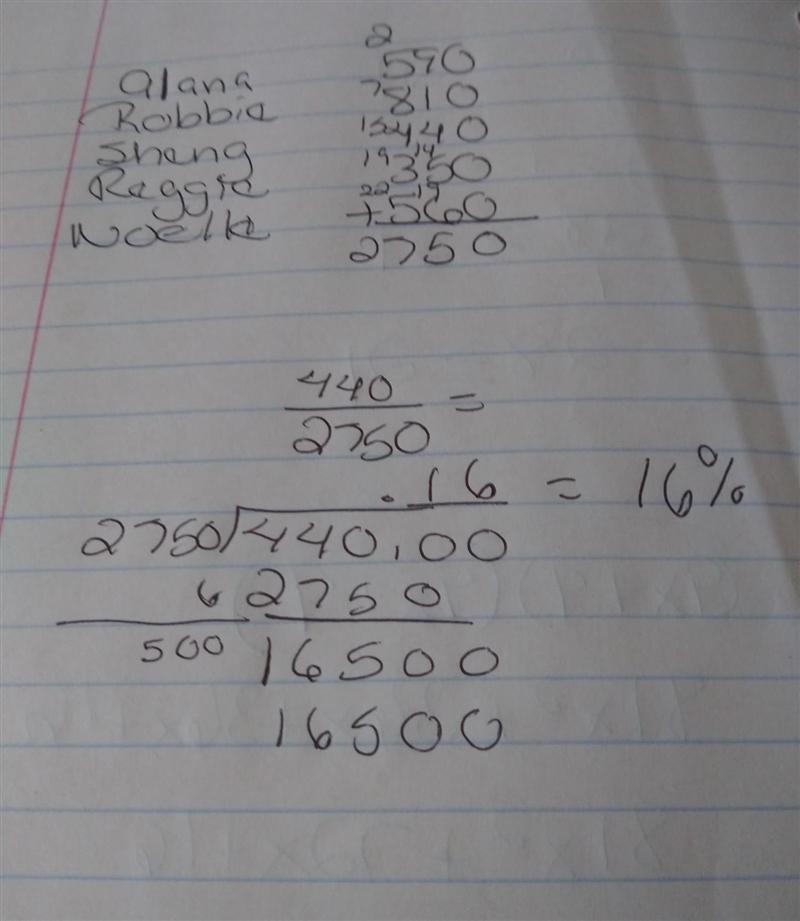 2
Alana 590
Robbie 7810
Sheng 440
Reggie 19 14 350
Noelle 22 19 +560
2750
440
2750 =
.16 = 16%
2750 440.00
6 2750
500 16500
16500